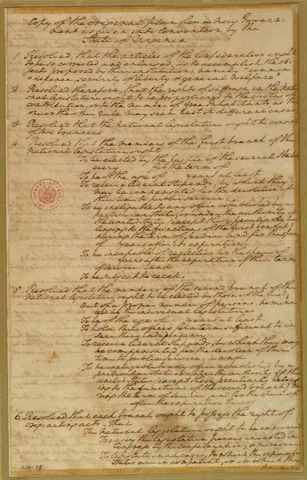 Copy of the original plan for a new Govern-
ment as given into Convention by the
State of Virginia
1 Resolved that the articles of the Confederation ought
to be so corrected and enlarged, as to accomplish the ob-
jects proposed by their institution, namely common
defence, security of liberty & general welfare
2 Resolved therefore, that the rights of suffrage in the nati-
onal legislature ought to be proportioned to the quotas of
contribution, or to the number of free inhabitants, as the
one or the other rule may seem best in different cases
3 Resolved that the national legislature ought to consist
of two branches
4 Resolved that the members of the first branch of the
national legislature ought
To be elected by the people of the several States
every for the term of
To be of the age of years at least
To receive liberal stipends, by which they
may be compensated for the devotion of
their time to public service
To be ineligible to any office established by a
particular state, or under the authority of
the united States, except those peculiarly be-
longing to the functions of the first branch
during the term of service, and for the space
of after its expiration
To be incapable of re-election for the space
of after the expiration of their term
of service and
To be subject to recal.
5 Resolved that the members of the second branch of the
national legislature ought to be elected by those of the first
out of a proper number of persons nomi-
nated by the individual legislatures
To be of the age of years at least
To hold their offices for a term sufficient to in-
sure their independency
To receive liberal stipends, by which they may
be compensated for the devotion of their
time to public service, and
To be ineligible to any office established by a
particular state, or under the authority of the
united States except those peculiarly belong-
ing to the functions of the second branch
for the term of service, and for the space of
after the expiration thereof
6 Resolved that each branch ought to possess the right of
originating acts, that
The national legislature ought to be empowered
to enjoy the legislative powers vested in
congress by the confederation, and moreover
To legislate in all cases, to which the separate
States are incompetent, or in which the